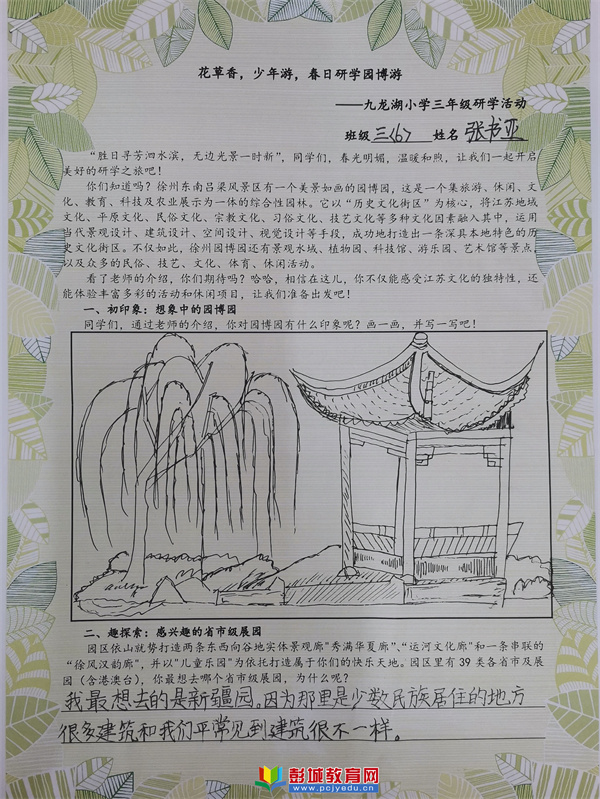 花草香，少年游，春日研学园博游
——九龙湖小学三年级研学活动
班级 三<6> 姓名 张书亚
“胜日寻芳泗水滨，无边光景一时新”，同学们，春光明媚，温暖和煦，让我们一起开启
美好的研学之旅吧！
你们知道吗？徐州东南吕梁风景区有一个美景如画的园博园，这是一个集旅游、休闲、文
化、教育、科技及农业展示为一体的综合性园林。它以“历史文化街区”为核心，将江苏地域
文化、平原文化、民俗文化、宗教文化、习俗文化、技艺文化等多种文化因素融入其中，运用
当代景观设计、建筑设计、空间设计、视觉设计等手段，成功地打造出一条深具本地特色的历
史文化街区。不仅如此，徐州园博园还有景观水域、植物园、科技馆、游乐园、艺术馆等景点
以及众多的民俗、技艺、文化、体育、休闲活动。
看了老师的介绍，你们期待吗？哈哈，相信在这儿，你不仅能感受江苏文化的独特性，还
能体验丰富多彩的活动和休闲项目，让我们准备出发吧！
一、初印象：想象中的园博园
同学们，通过老师的介绍，你对园博园有什么印象呢？画一画，并写一写吧！
二、趣探索：感兴趣的省市级展园
园区依山就势打造两条东西向谷地实体景观廊"秀满华夏廊"、"运河文化廊"和一条串联的
“徐风汉韵廊”，并以"儿童乐园"为依托打造属于你们的快乐天地。园区里有 39 类各省市及展
园（含港澳台），你最想去哪个省市级展园，为什么呢？
我最想去的是新疆园。因为那里是少数民族居住的地方
很多建筑和我们平常见到建筑很不一样。
彭城教育网
www.pcjyedu.cn